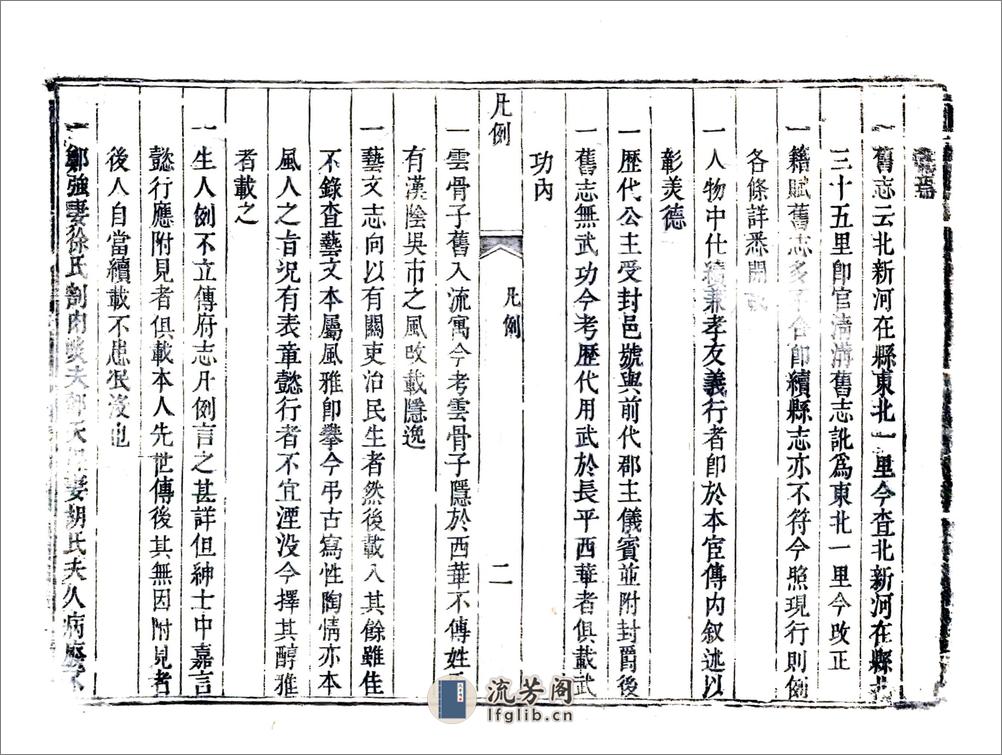 一舊志云北新河在縣東北一里今查北新河在縣北
三十五里卽官溝舊志訛爲東北一里今改正
一籍賦舊志多不合卽續縣志亦不符今照現行則例
各條詳悉開
一人物中仕績兼孝友義行者卽於本宦傳內叙述以
彰美德
一歷代公主受封邑號與前代郡主儀賓並附封爵後
一舊志無武功今考歷代用武於長平西華者俱載武
功內
凡例
凡例
二
一雲骨子舊入流寓今考雲骨子隱於西華不傳姓
有漢陰吳市之風改載隱逸
一藝文志向以有關吏治民生者然後載入其餘雖佳
不錄查藝文本屬風雅卽攀今弔古寫性陶情亦本
風人之旨况有表章懿行者不宜湮没今擇其醇雅
者載之
一生人例不立傳府志凡例言之甚詳但紳士中嘉言
懿行應附見者俱載本人先世傳後其無因附見者
後人自當續載不患泯沒也
一鄭強妻徐氏割肉夫妻胡氏夫久病
流芳阁
lfglib.cn